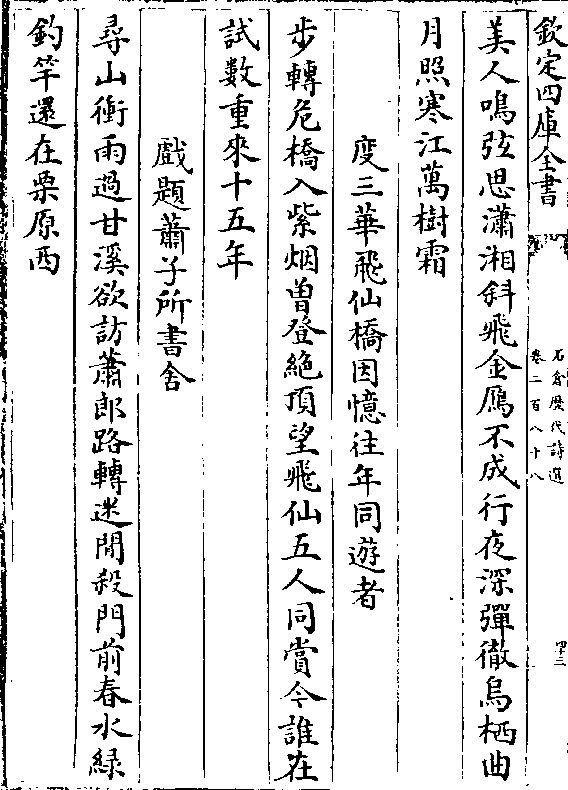 欽定四庫全書
石倉歷代詩選
卷二百八十八
四三
美人鳴弦思瀟湘斜飛金鴈不成行夜深彈徹烏栖曲
月照寒江萬樹霜
度三華飛仙橋因憶往年同遊者
步轉危橋入紫烟曽登絶頂望飛仙五人同賞今誰在
試數重來十五年
戲題蕭子所書舍
尋山衝雨過甘溪欲訪蕭郎路轉迷閒殺門前春水緑
釣竿還在栗原西